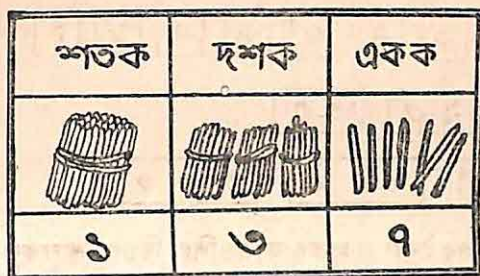 শতক দশক একক
১ ৩ ৭